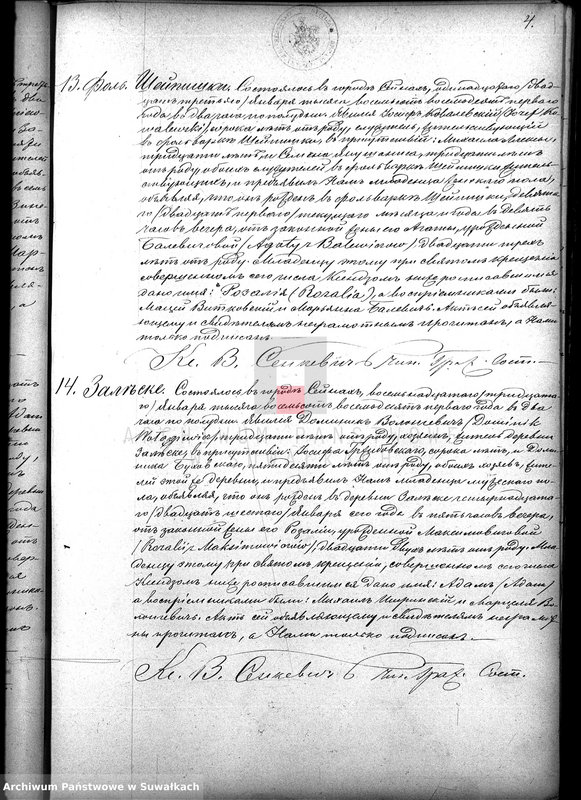 4.
13. Фоль. Шейпишки. Состоялось в городе Сейнах, одинадцатаго / двад
цать третьяго / Января тысяча восемьсот восемьдесят перваго
года в два часа по полудни. Явился Іосиф Ковалевскій / Józef Ко
walewski / сорока лет от роду, служитель, жительствующій
в фольварке Шейпишки, в присутствіи: Михаила
тридцати лет, и Семена тридцати
от роду обоих служителей в фольварке Шейпишки
и предъявил Нам младенца женского пола,
объявляя, что он рожден в фольварке Шейпишки, девята
го / двадцать перваго / текущаго месяца и года в девять
часов вечера, от законной жены его Агаты, урожденной
Балевичовой / Agaty z Balewiczów / двадцати трех
лет от роду. Младенцу этому при святом крещеніи
совершенном сего числа Ксендзом нижеподписавшимся
дано имя: Розалія (Rozalia), а восприемниками были:
Мацей Витковскій и Марьянна Балевич. Акт сей объявля
ющему и свидетелям неграмотным прочитан, а Нами
только подписан.
Кс. В. Сенкевич Чин. Граж. Сост.
14. Залеске. Состоялось в городе Сейнах, восемнадцатаго / тридцата
го / Января тысяча восемьсот восемьдесят перваго года в два
часа по полудни. Явился Доминик Волынгевич / Dominik
Wołągiewicz / тридцати лет от роду, хозяин, житель деревни
Залеске, в присутствіи: Іосифа сорока лет, и Доми
ника пятидесяти лет от роду, обоих хозяев, жите
лей этой же деревни, и предъявил Нам младенца мужескаго по
ла, объявляя, что он рожден в деревни Залеске четырнадцата
го / двадцать шестого / Января сего года в пять часов вечера,
от законной жены его Розаліи, урожденной Максимовичовой
/ Rozalii z Maksimowiczów / двадцати двух лет от роду. Мла
денцу этому при святом крещеніи, совершенном сего числа
Ксендзом нижеподписавшимся дано имя: Адам / Adam /
а восприемниками были: Михаил и Марцеля Во
лынгевич. Акт сей объявляющему и свидетелям неграмот
ным прочитан, а Нами только подписан.
Кс. В. Сенкевич Чин. Граж. Сост.
Archiwum Państwowe w Suwałkach